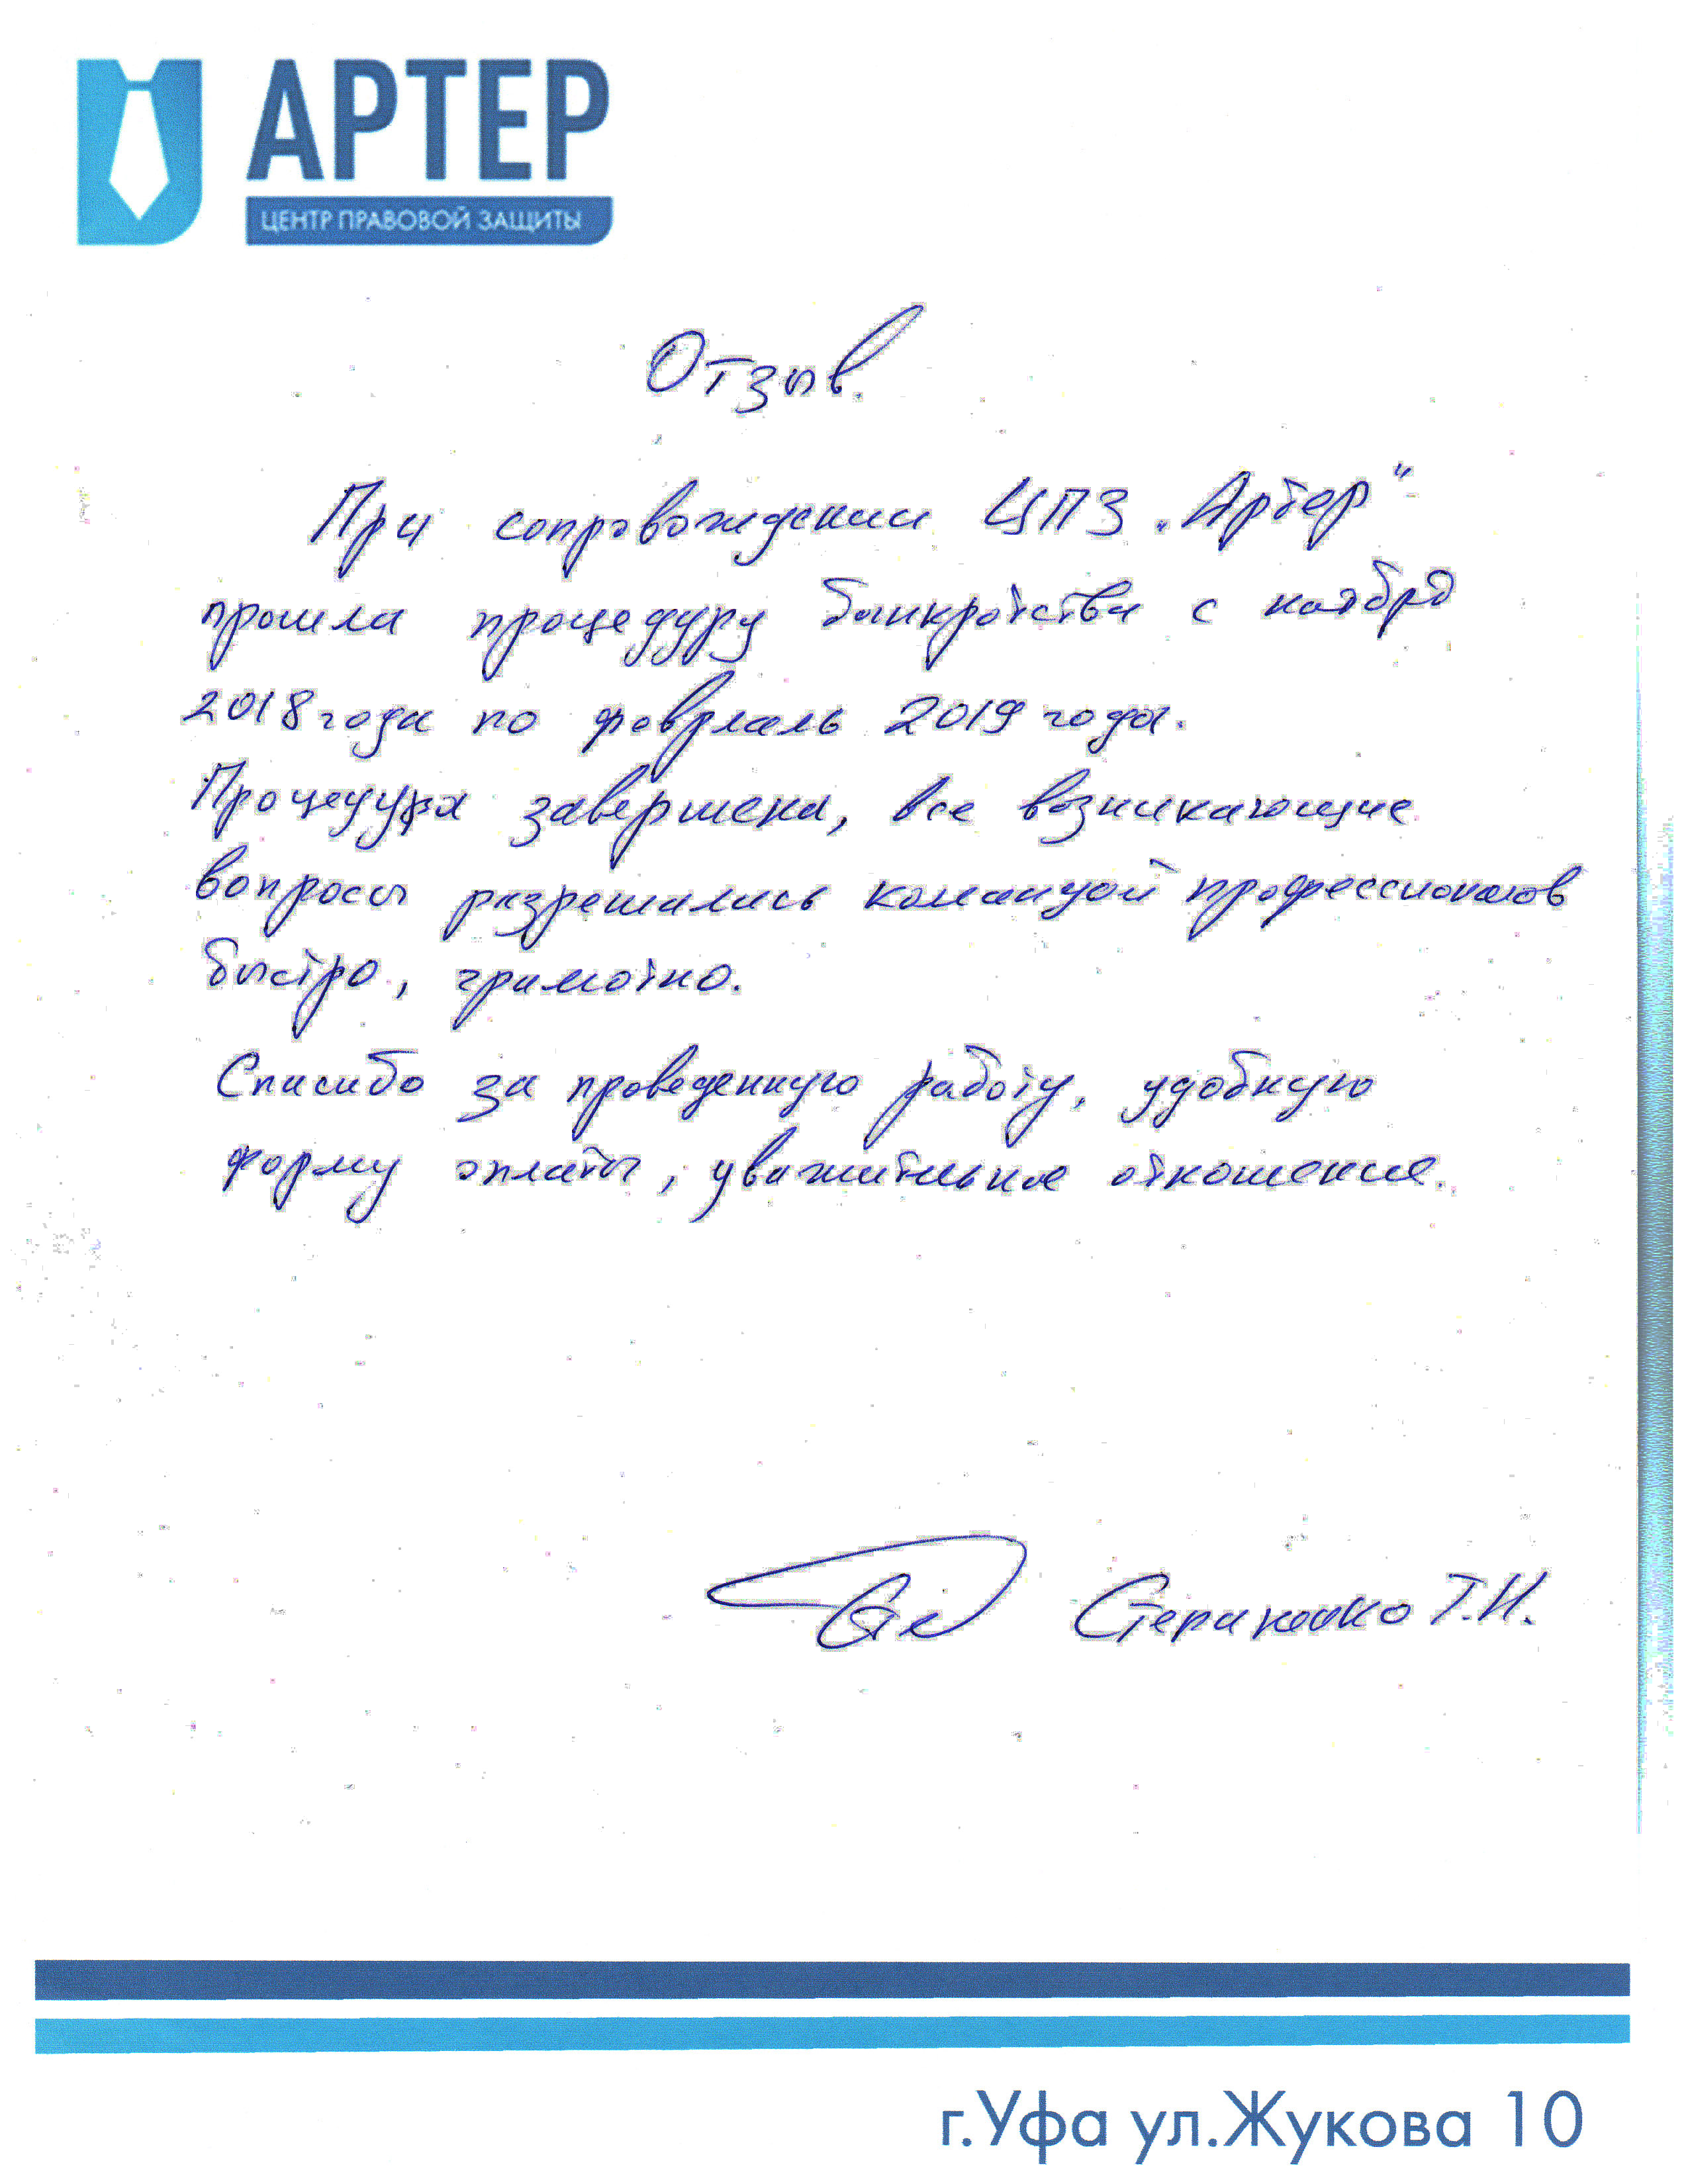 АРТЕР
ЦЕНТР ПРАВОВОЙ ЗАЩИТЫ
Отзыв.
При сопровождении ЦПЗ „Артер"
прошла процедуру банкротства с ноября
2018 года по февраль 2019 года.
Процедура завершена, все возникающие
вопросы разрешались командой профессионалов
быстро, грамотно.
Спасибо за проведенную работу, удобную
форму оплаты, уважительное отношение.
Т.Н.
г.Уфа ул.Жукова 10